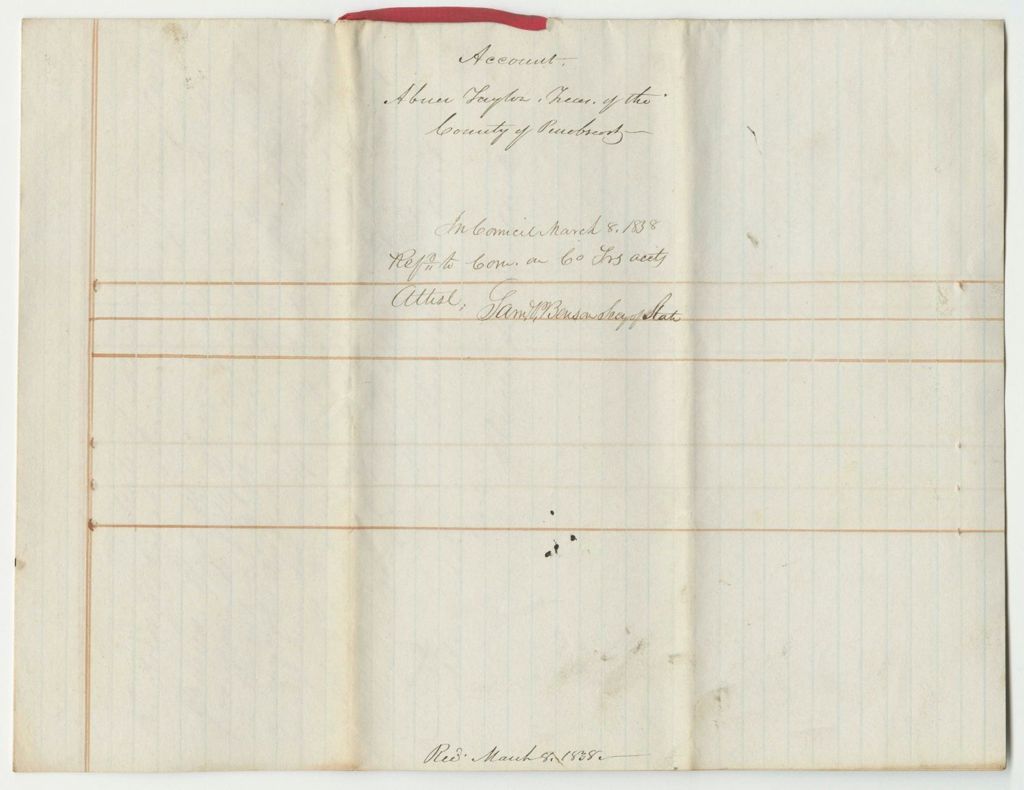 Account.
Abner Taylor. Treas. of the
County of Penobscot
In Council March 8. 1838
Refd. to Com. on Co Trs accts
Attest, Saml. P. Benson Secy of State
Recd. March 8. 1838.